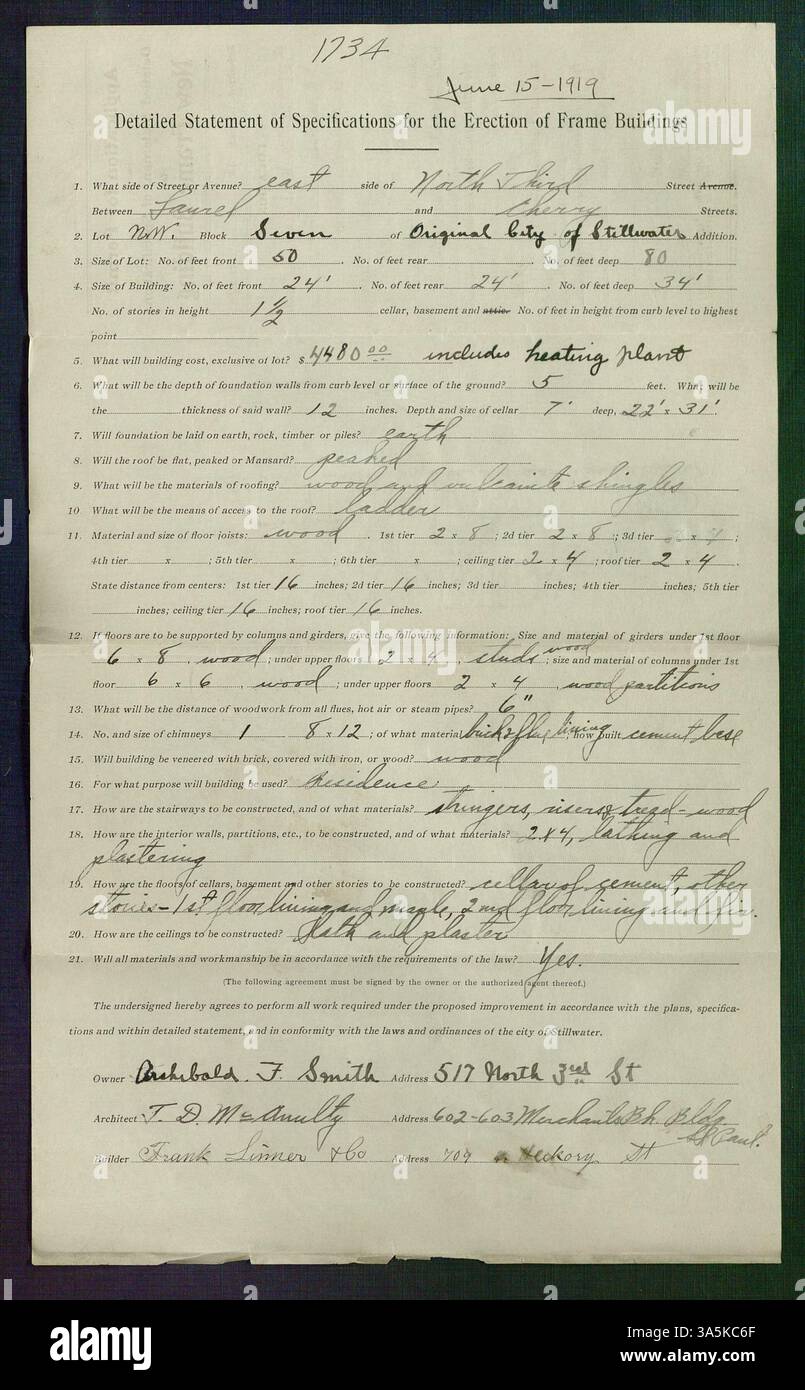 1734
June 15-1919
Detailed Statement of Specifications for the Erection of Frame Buildings
1. What side of Street or Avenue? east side of North Third Street Avenue.
Between Laurel and Cherry Streets.
2. Lot N.W. Block Seven of Original City of Stillwater Addition.
3. Size of Lot: No. of feet front 50. No. of feet rear. No. of feet deep 80
4. Size of Building: No. of feet front 24'. No. of feet rear 24'. No. of feet deep 34'
No. of stories in height 1 1/2 cellar, basement and attic. No. of feet in height from curb level to highest
point
5. What will building cost, exclusive of lot? $ 4480 00 includes heating plant
6. What will be the depth of foundation walls from curb level or surface of the ground? 5 feet. What will be
the thickness of said wall? 12 inches. Depth and size of cellar 7' deep, 22' x 31'.
7. Will foundation be laid on earth, rock, timber or piles? earth
8. Will the roof be flat, peaked or Mansard? peaked
9. What will be the materials of roofing? wood and vulcanite shingles
10. What will be the means of access to the roof? ladder
11. Material and size of floor joists: wood. 1st tier 2 x 8; 2d tier 2 x 8; 3d tier x;
4th tier x; 5th tier x; 6th tier x; ceiling tier 2 x 4; roof tier 2 x 4.
State distance from centers: 1st tier 16 inches; 2d tier 16 inches; 3d tier inches; 4th tier inches; 5th tier
inches; ceiling tier 16 inches; roof tier 16 inches.
12. If floors are to be supported by columns and girders, give the following information: Size and material of girders under 1st floor
6 x 8, wood; under upper floors 2 x 4, studs wood; size and material of columns under 1st
floor 6 x 6, wood; under upper floors 2 x 4, wood partitions
13. What will be the distance of woodwork from all flues, hot air or steam pipes? 6"
14. No. and size of chimneys 1 8 x 12; of what material brick & flue lining; how built cement base
15. Will building be veneered with brick, covered with iron, or wood? wood
16. For what purpose will building be used? Residence
17. How are the stairways to be constructed, and of what materials? stringers, risers & tread - wood
18. How are the interior walls, partitions, etc., to be constructed, and of what materials? 2x4, lathing and
plastering
19. How are the floors of cellars, basement and other stories to be constructed? cellar of cement, other
stories - 1st floor lining and maple, 2nd floor lining and fir.
20. How are the ceilings to be constructed? lath and plaster
21. Will all materials and workmanship be in accordance with the requirements of the law? Yes.
(The following agreement must be signed by the owner or the authorized agent thereof.)
The undersigned hereby agrees to perform all work required under the proposed improvement in accordance with the plans, specifica-
tions and within detailed statement, and in conformity with the laws and ordinances of the city of Stillwater.
Owner Archibald. F. Smith Address 517 North 3rd St
Architect T. D. McAnulty Address 602-603 Merchants Bk. Bldg
St Paul.
Builder Frank Linner & Co Address 709 Hickory St
alamy
Image ID: 3A5KC6F
www.alamy.com